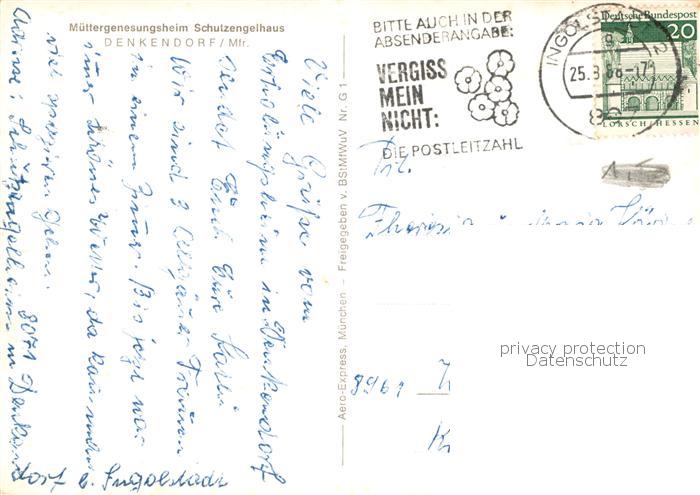 Müttergenesungsheim Schutzengelhaus
DENKENDORF/Mfr.
Viele Grüße vom
Erholungsheim in Denkendorf
sendet Euch Eure
Wir sind 3 Allgäuer Frauen
in einem Zimmer. Bis jetzt war
immer schönes Wetter, da kann man
viel spazieren gehen.
Adresse: Schutzengelheim 8071 Denken
dorf b. Ingolstadt
Aero-Express, München — Freigegeben v. BStMfWuV Nr. G 1
BITTE AUCH IN DER
ABSENDERANGABE:
VERGISS
MEIN
NICHT:
DIE POSTLEITZAHL
INGOLSTADT 2
25.8.68-17
807
Deutsche Bundespost
20
LORSCH/HESSEN
Frl.
Theresia
8961
privacy protection
Datenschutz